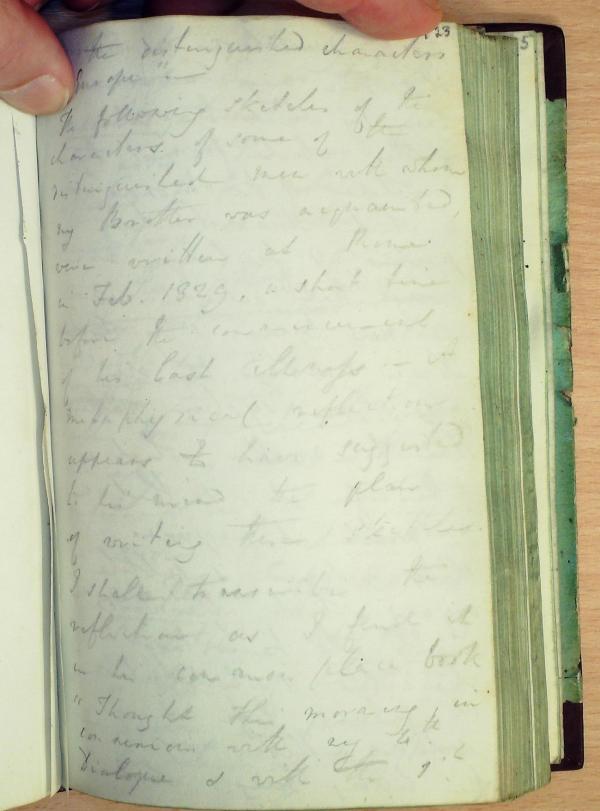 123
5
the distinguished characters
Europe" -
The following sketches of the
characters of some of the
distinguished men with whom
my Brother was acquainted,
were written at Rome
in Feb. 1829, a short time
before the commencement
of his last illness - A
metaphysical reflection
appears to have suggested
to his mind the plan
of writing these sketches.
I shall transcribe the
reflection as I find it
in his common place book
"Thought this morning in
connexion with my 4th
Dialogue & with the